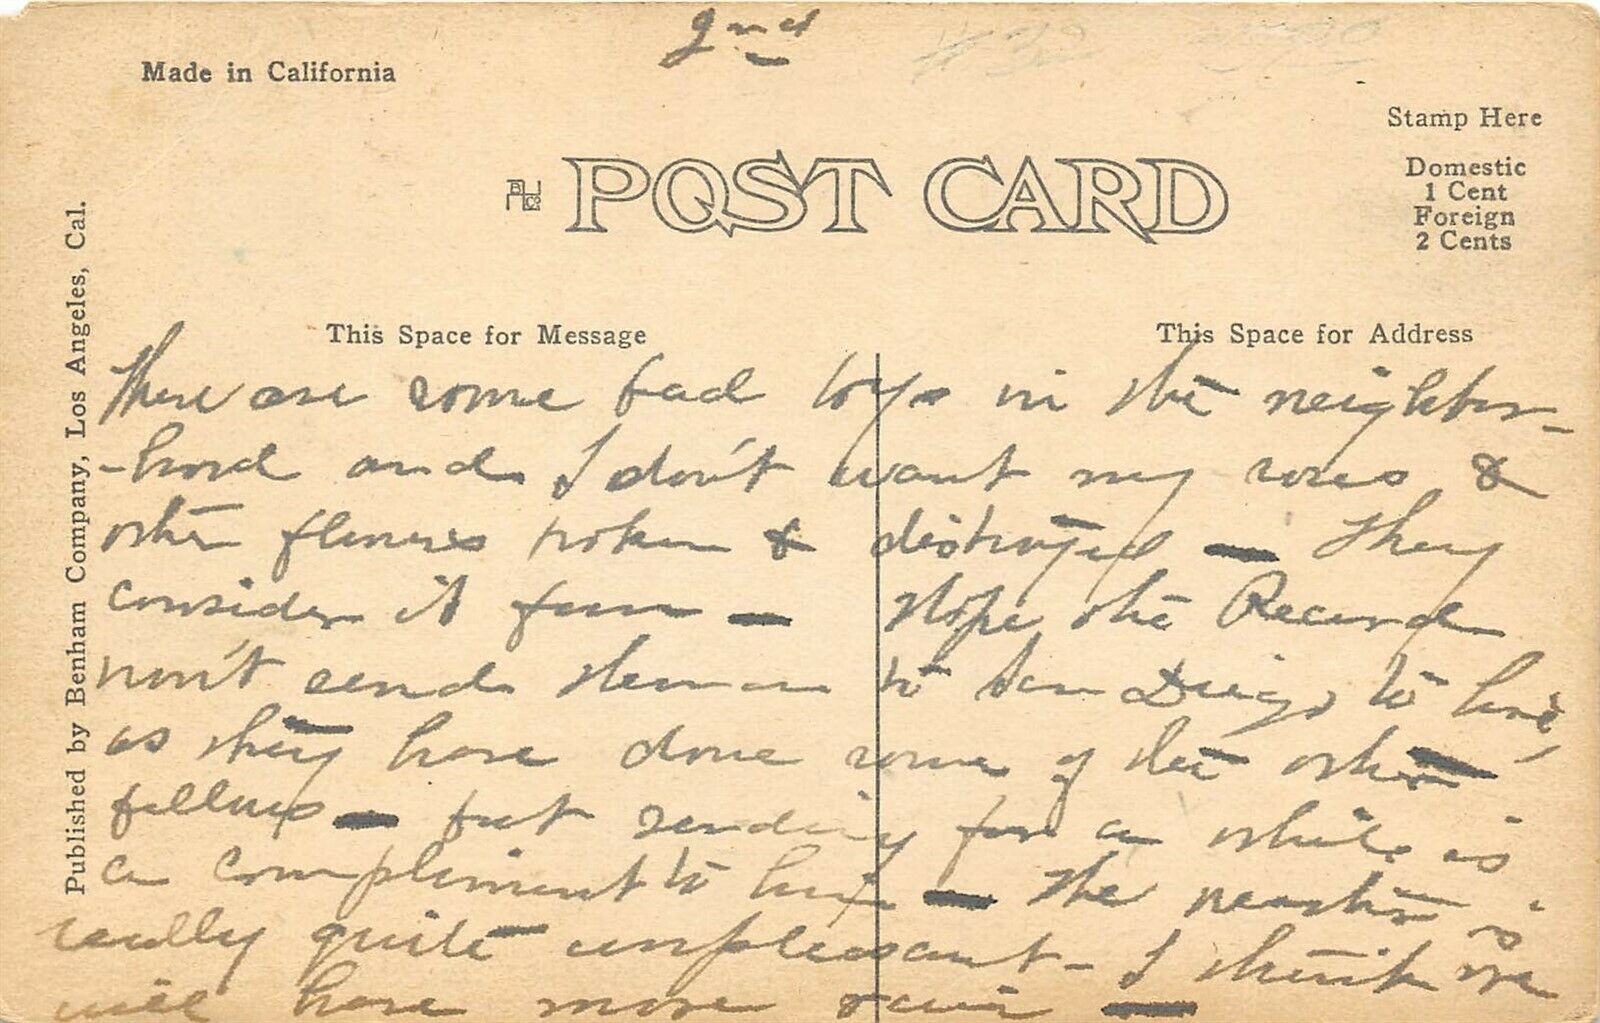 2nd
Made in California
Stamp Here
Domestic
1 Cent
Foreign
2 Cents
POST CARD
Published by Benham Company, Los Angeles, Cal.
This Space for Message
This Space for Address
There are some bad boys in the neighbor-
-hood and I don't want my roses &
other flowers broken & destroyed — They
consider it fun — Hope the Record
won't send Herman to San Diego to live,
as they have done some of the other
fellows — but sending for a while is
a compliment to him — The weather is
really quite unpleasant - I think we
will have more rain —